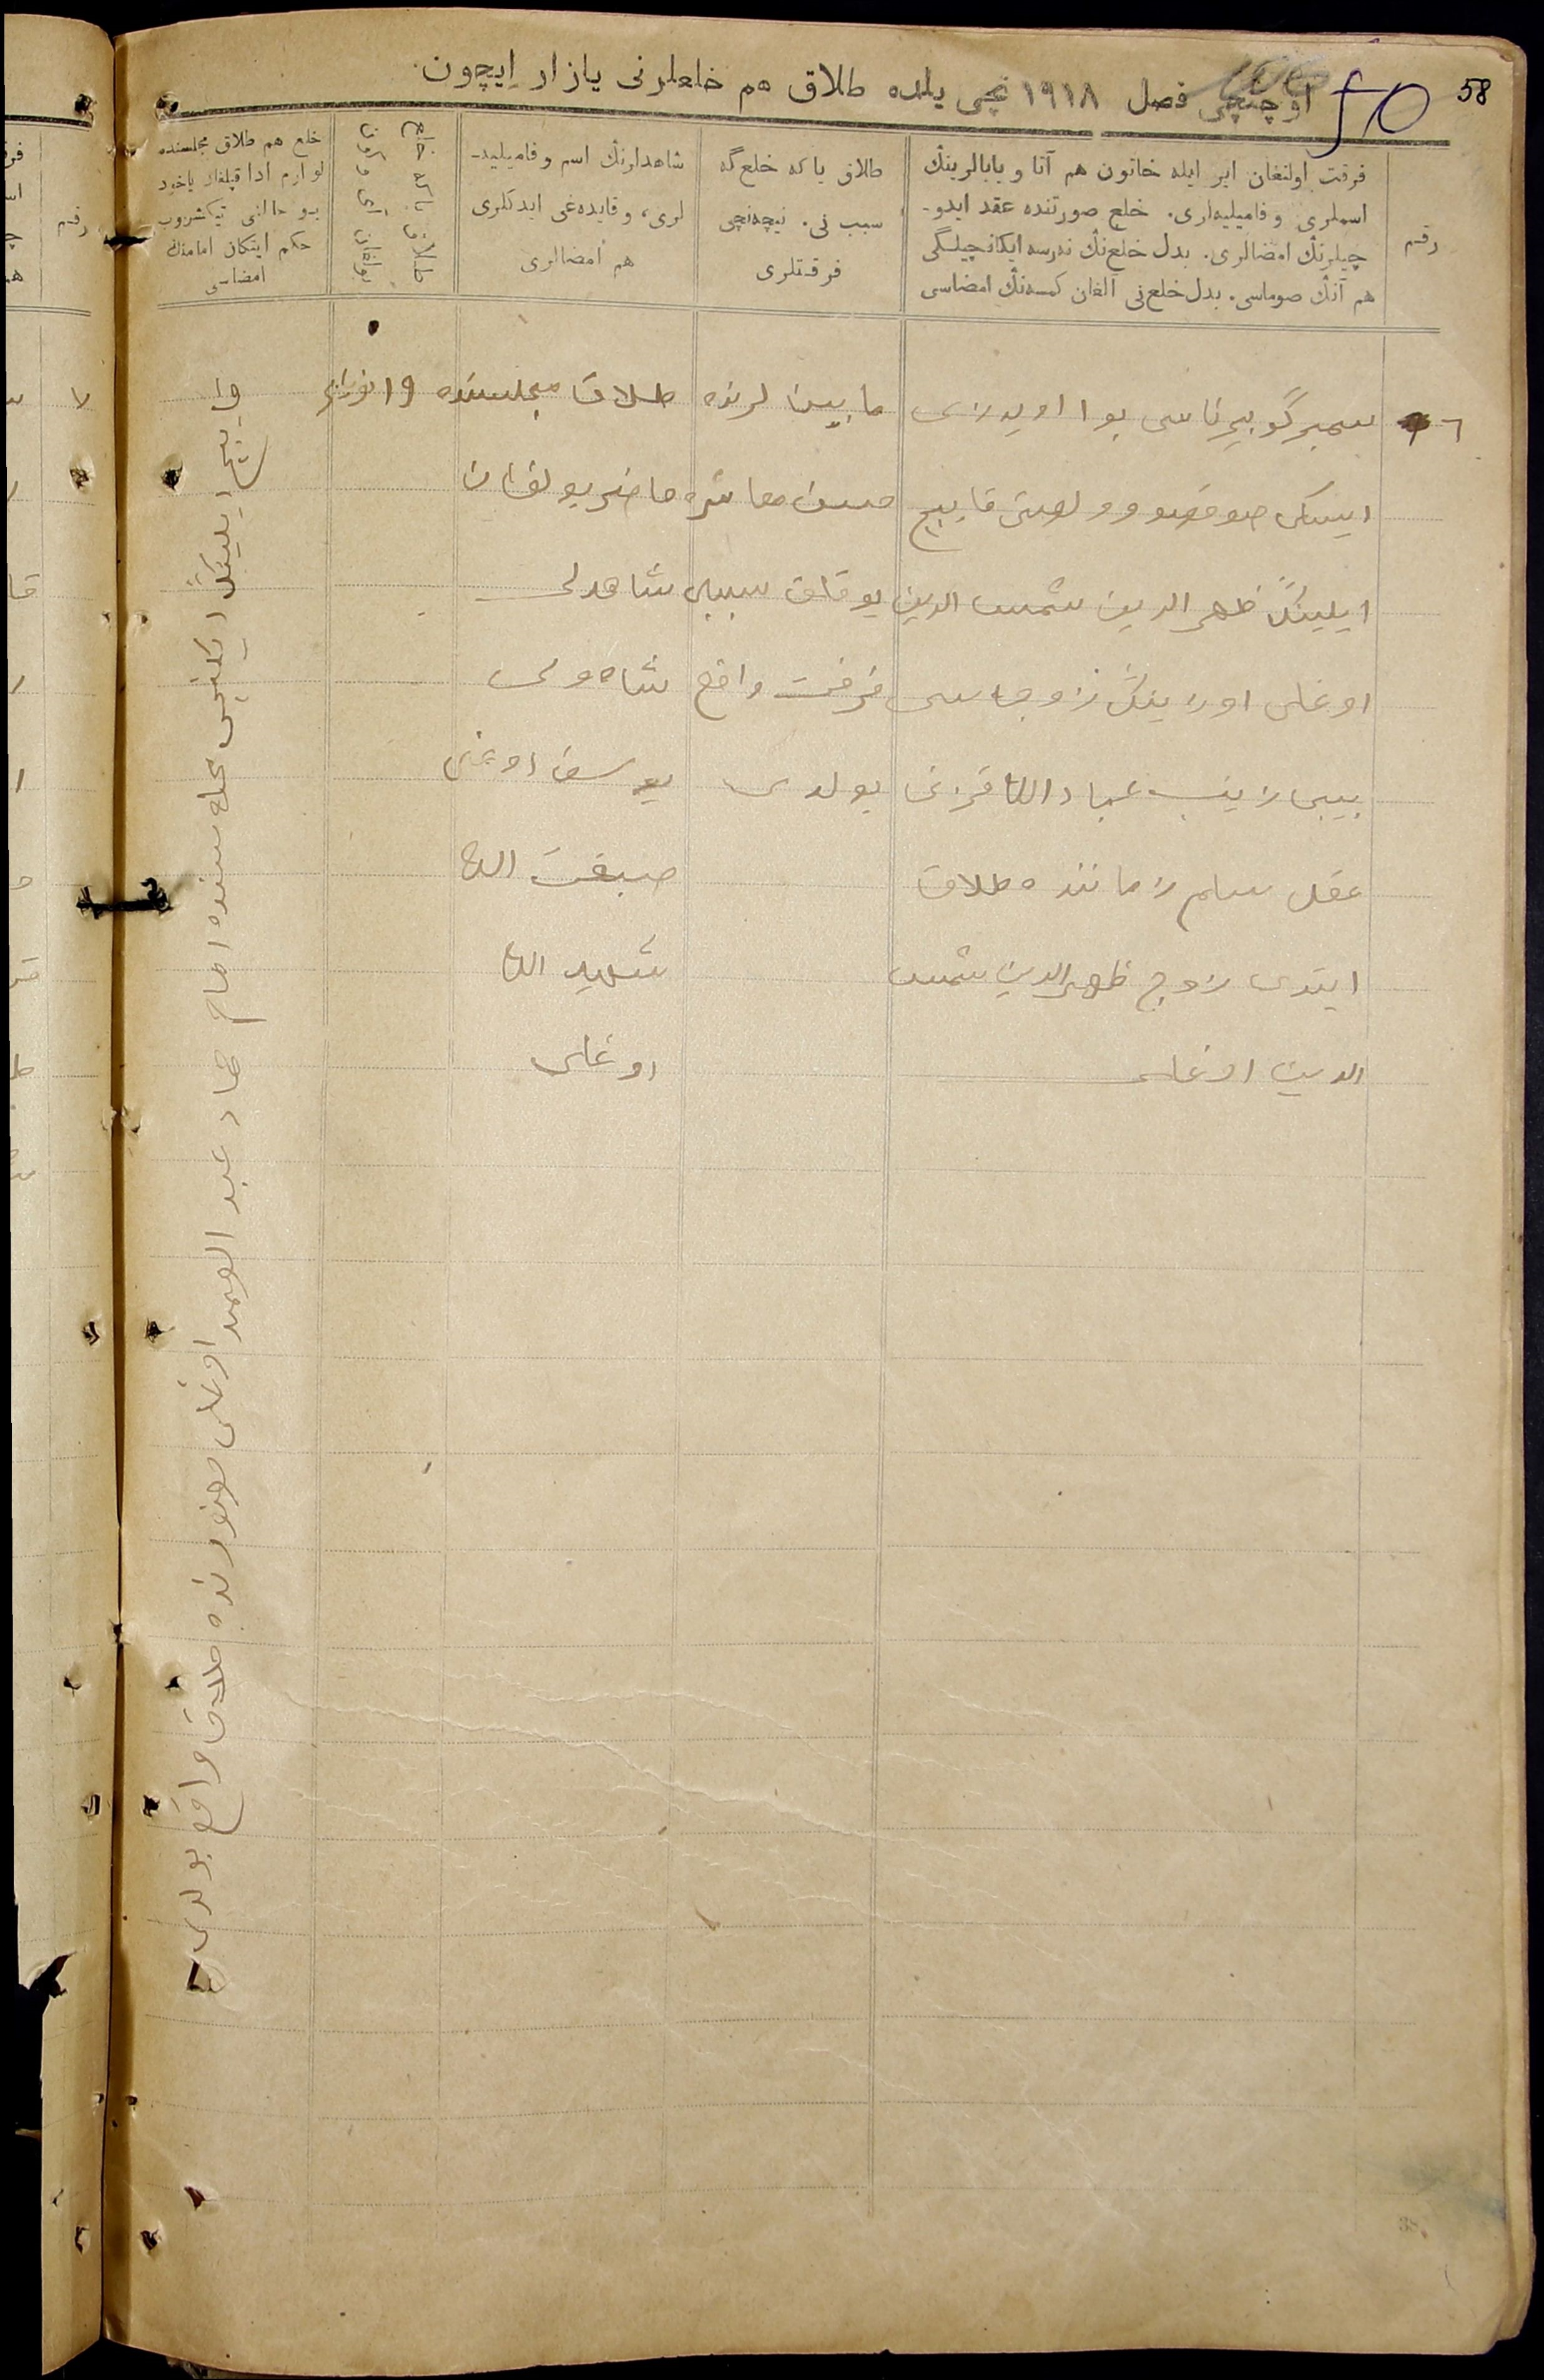 58
اوچنچی فصل ١٩١٨ نچی یلده طلاق هم خلعلرنی یازار ایچون.
رقم
فرقت اولنغان ایر ایله خاتون هم آنا و بابالرینڭ
اسملری و فامیلیەلری. خلع صورتنده عقد ایدو-
چیلرنڭ امضالری. بدل خلع‌نڭ ندرسه ایکانچیلگی
هم آنڭ صوماسی. بدل خلع‌نی آلغان کمسه‌نڭ امضاسی
طلاق یا که خلع گه
سبب نی. نیچه‌نچی
فرقتلری
شاهدلرنڭ اسم و فامیلیه-
لری، و قایده‌غی ایدکلری
هم امضالری
طلاق یا که خلع
بولغان آی و کون
خلع هم طلاق مجلسنده
لوازم ادا قیلغان یاخود
بو حالنی تیکشروب
حکم ایتکان امامنڭ
امضاسی
٦
سمبر گوبیرناسی بوا اویازی
ایسکی
ایلینڭ ظهر الدین شمس الدین
اوغلی اوزینڭ زوجاسی
بیبی زینب عباد الله قزنی
عقل سلیم زماننده طلاق
ایتدی زوج ظهر الدین شمس
الدین اوغلی
ما بین لرنده
حسن معاشره
یوقلق سببلی
فرقت واقع
بولدی
طلاق مجلسنده
حاضر بولغان
شاهدلر
شاه ولی
یوسف اوغلی
صبغت الله
شهید الله
اوغلی
١٩
ایلینڭ ایکنچی محله سنده امام عبد الصمد اوغلی حضورنده طلاق واقع بولدی